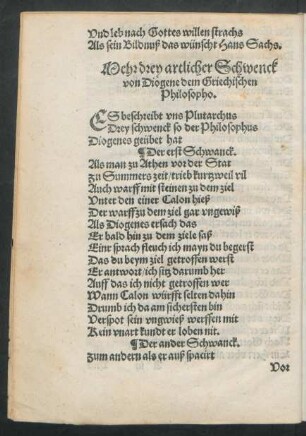 Vnd leb nach Gottes willen strachs
Als sein Bildnuß das wünscht Hans Sachs.
Mehr drey artlicher Schwenck
von Diogene dem Griechischen
Philosopho.
ES beschreibt vns Plutarchus
Drey schwenck so der Philosophus
Diogenes geübet hat
¶ Der erst Schwanck.
Als man zu Athen vor der Stat
Zu Summers zeit / trieb kurzweil vil
Auch warff mit steinen zu dem ziel
Vnter den einer Calon hieß
Der warff zu dem ziel gar vngewiß
Als Diogenes ersach das
Er bald hin zu dem ziele saß
Einr sprach fleuch ich mayn du begerst
Das du beym ziel getroffen werst
Er antwort / ich sitz darumb her
Auff das ich nicht getroffen wer
Wann Calon würfft selten dahin
Drumb ich da am sichersten bin
Verspot sein vngwieß werffen mit
Kein vnart kundt er loben nit.
¶ Der ander Schwanck.
Zum andern als er auß spacirt
Vor